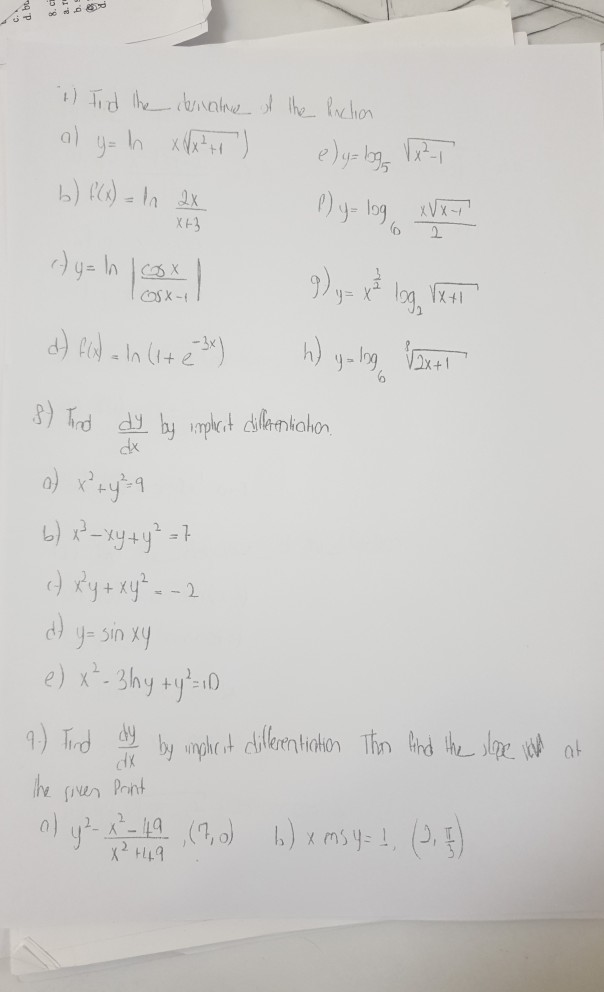 c.
d. bu
8. c
a. r
b.
d.
i) Find the derivative of the function
a) y = ln x(√x²+1)
e) y = log₅ √x²-1
b) f(x) = ln 2x/x+3
f) y = log₆ x√x-1/2
c) y = ln |cos x/cosx-1|
g) y = x^(3/2) log₂ √x+1
d) f(x) = ln (1+e^-3x)
h) y = log₆ ∛2x+1
8) Find dy/dx by implicit differentiation.
a) x²+y²=9
b) x³-xy+y²=7
c) x²y+xy²=-2
d) y=sin xy
e) x²-3lny+y²=10
9.) Find dy/dx by implicit differentiation Then find the slope at
the given Point
a) y²= x²-49/x²+49, (7,0) b) x cosy=1, (2, π/3)